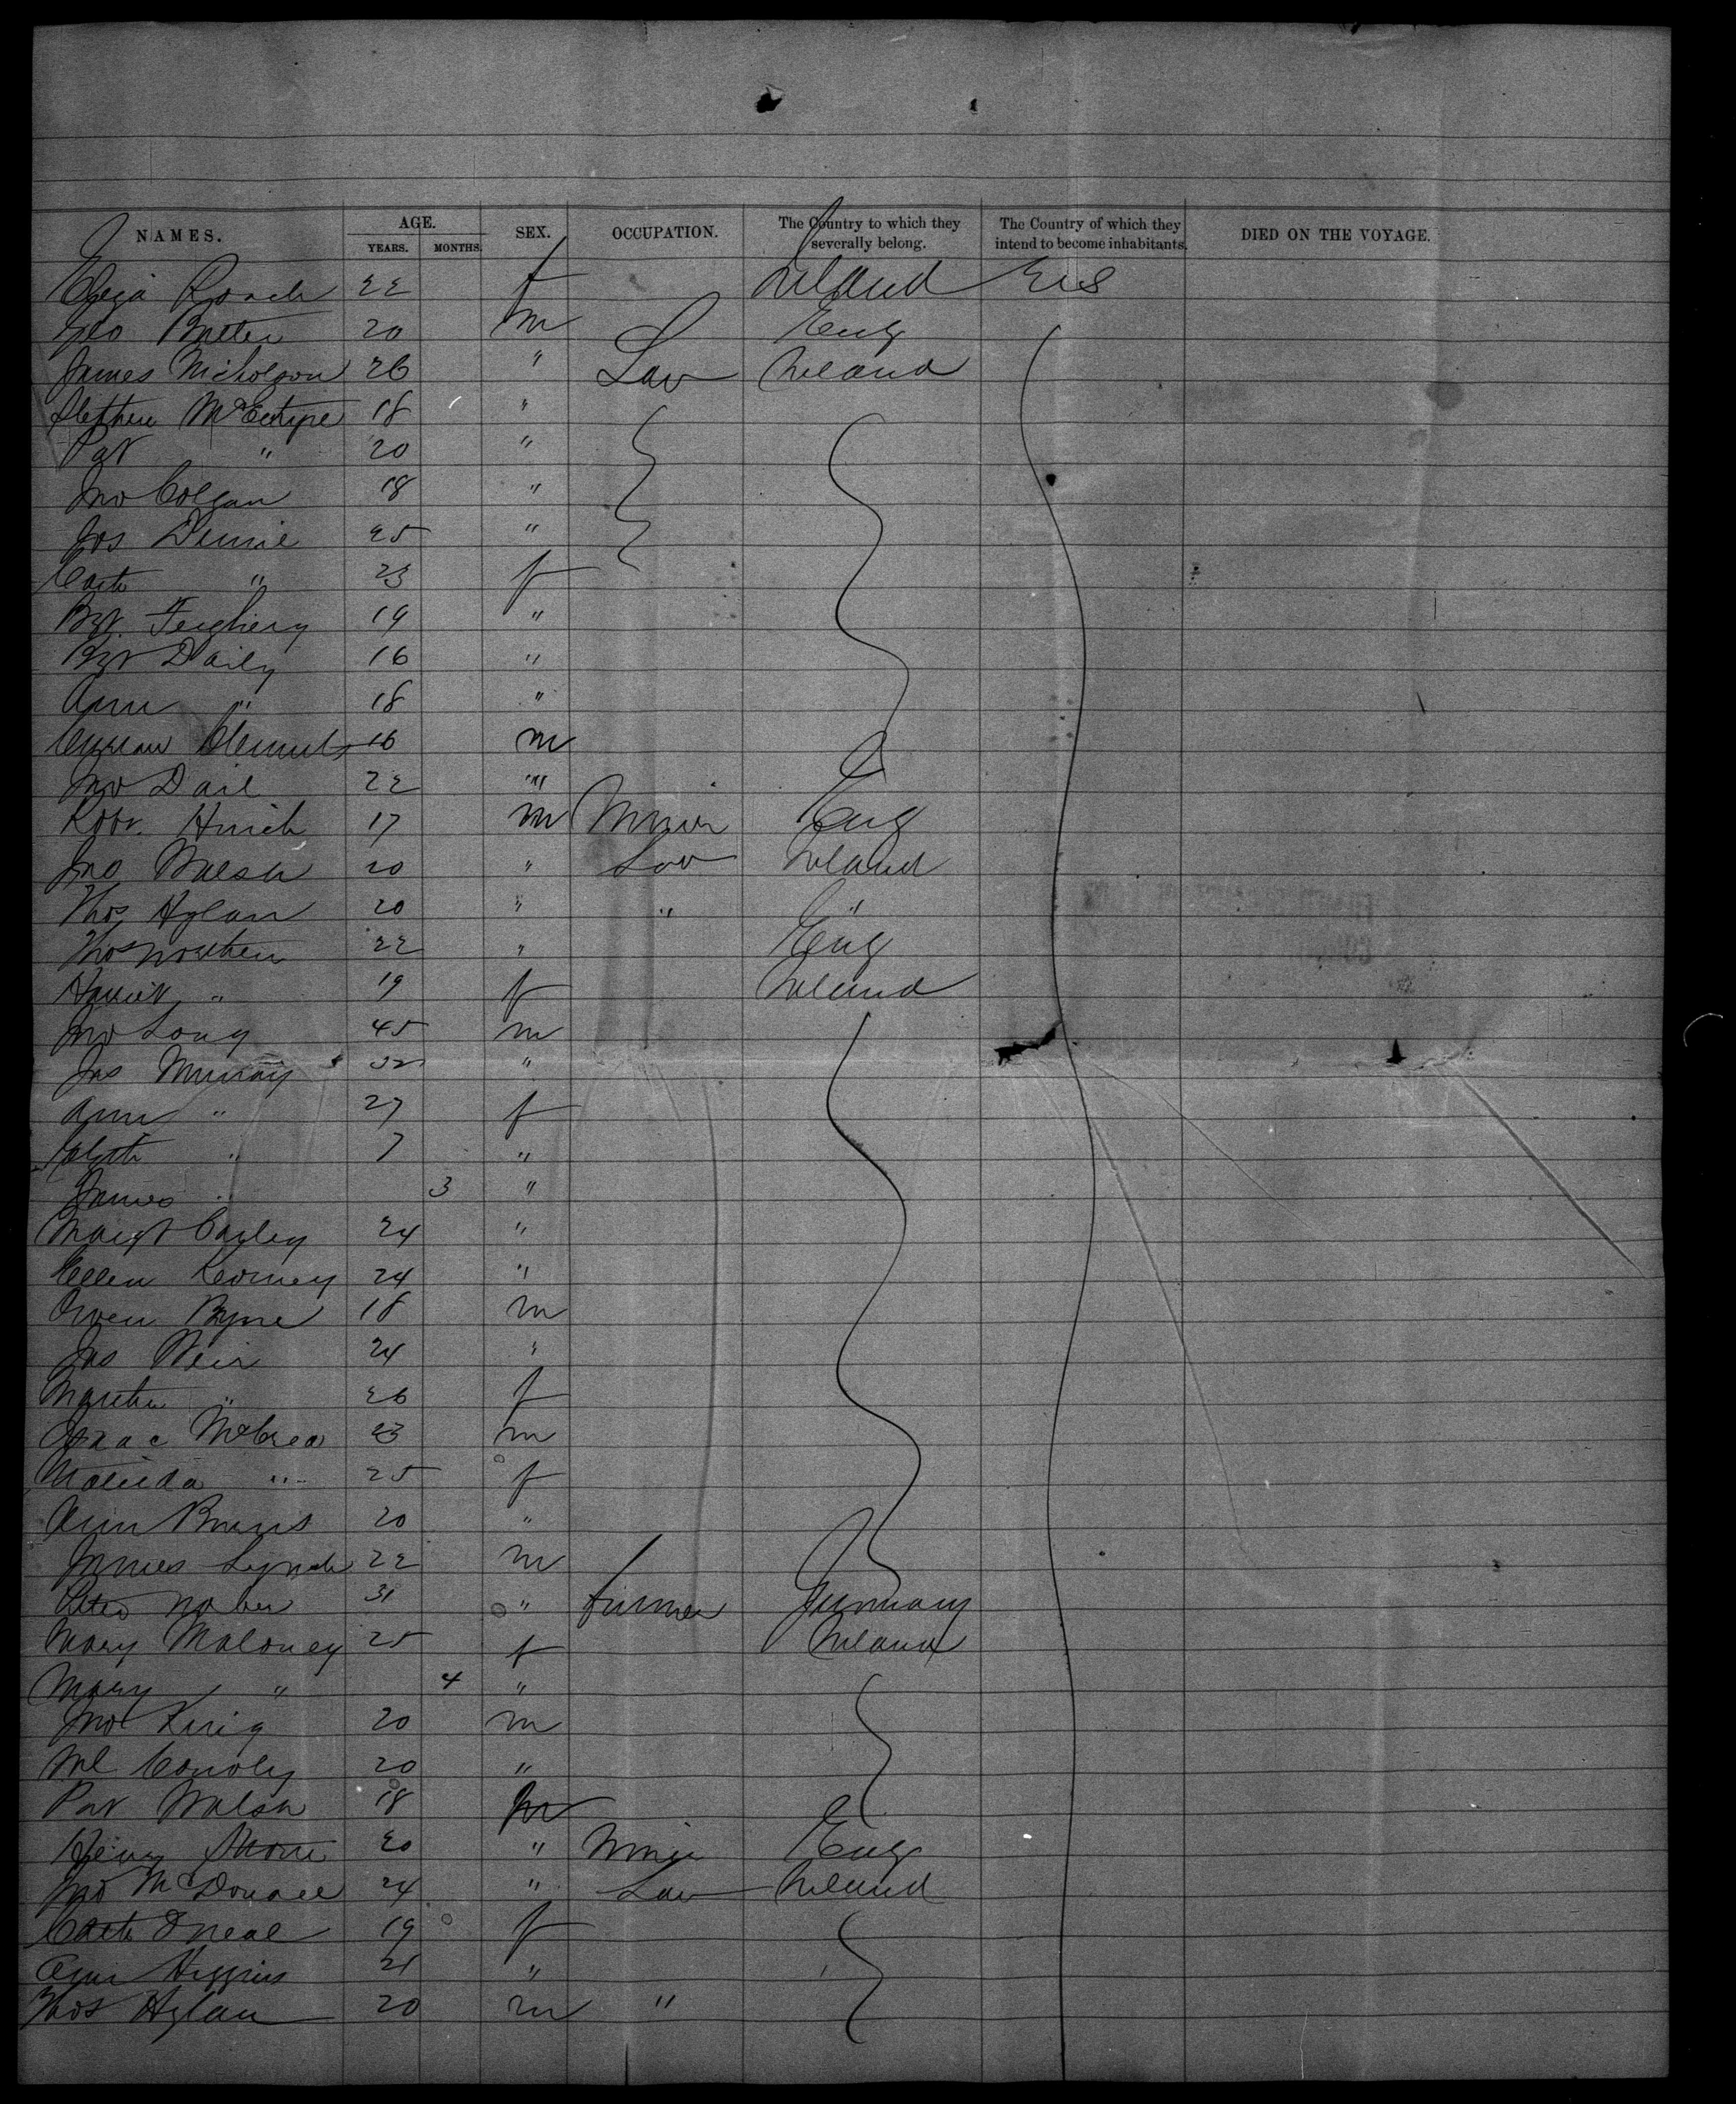 NAMES. AGE. YEARS. MONTHS. SEX. OCCUPATION. The Country to which they severally belong. The Country of which they intend to become inhabitants. DIED ON THE VOYAGE.
Eliza Roach 22 f Ireland U S
Geo 20 m Eng
James Nicholson 26 " Lab Ireland
Stephen McEntyre 18 "
Pat " 20 "
Jno Colgan 18 "
Jos 25 "
Cath " 23 f
Bgt. Feighery 19 "
Bgt Daily 16 "
Ann " 18 "
16 m
Jno Dail 22 "
Robt. 17 m Miner Eng
Jno Walsh 20 " Lab Ireland
Thos Hylan 20 " " "
Thos 22 " Eng
Harriet " 19 f Ireland
Jno Long 45 m
Jas Murray 32 "
Ann " 27 f
" 7 "
James " 3 "
Margt 24 "
Ellen 24 "
Owen Byrne 18 m
Jas Weir 24 "
Martha " 26 f
Isaac McCrea 23 m
Malinda " 25 f
Ann Burns 20 "
James Lynch 22 m
31 " Farmer Germany
Mary Maloney 25 f Ireland
Mary " 4 "
Jno King 20 m
Ml Conoly 20 "
Pat Walsh 18 m
Henry 20 " Miner Eng
Jno McDonall 24 " Lab Ireland
Cath O'Neal 19 f
Higgins 21 "
Thos Hylan 20 m "